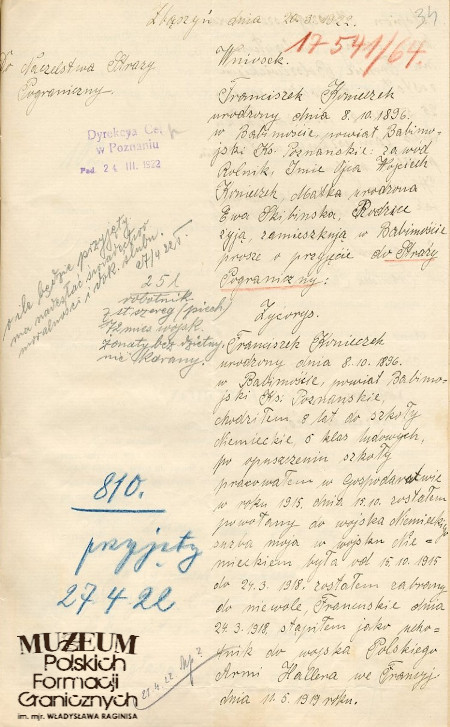 Zbąszyń dnia 20.3.1922.
34
17541/64
Do Naczelstwa Straży
Pograniczny,
Dyrekcya Ce
w Poznaniu
Pod. 24 III. 1922
Wniosek.
Franciszek Konieczek
urodzony dnia 8.10.1896.
w Babimoście, powiat Babimo-
jski Ks. Poznańskie: zawód
Rolnik, Imie Ojca Wojciech
Konieczek, Matka urodzona
Ewa Skibińska, Rodzice
żyją, zamieszkują w Babimoście
prosze o przyjęcie do Straży
Pogranicznyj:
o ile będzie przyjęty
ma nadesłać świadectwo
moralności i dok. ślubu.
27/4 22 r.
251
robotnik
st. szereg (piech)
72 mies wojsk.
żonaty bez dzietny
nie karany.
Życiorys.
Franciszek Konieczek
urodzony dnia 8.10.1896.
w Babimoście, powiat Babimo-
jski Ks. Poznańskie,
chodziłem 8 lat do szkoły
Niemieckie 6 klas ludowych,
po opuszczeniu szkoły
pracowałem w Gospodarstwie
w roku 1915. dnia 15.10. zostałem
powołany do wojska Niemieckie
moja w wojsku Nie=
mieckiem była od 15.10.1915
do 24.3.1918. zostałem zabrany
do niewole Francuskie dnia
24.3.1918, stąpiłem jako ucho-
tnik do wojska Polskiego
Armi Hallera we Francyj
dnia 11.6.1919 roku.
810.
przyjęty
27 4 22
27.4.22
MUZEUM
Polskich
Formacji
Granicznych
im. mjr. WŁADYSŁAWA RAGINISA